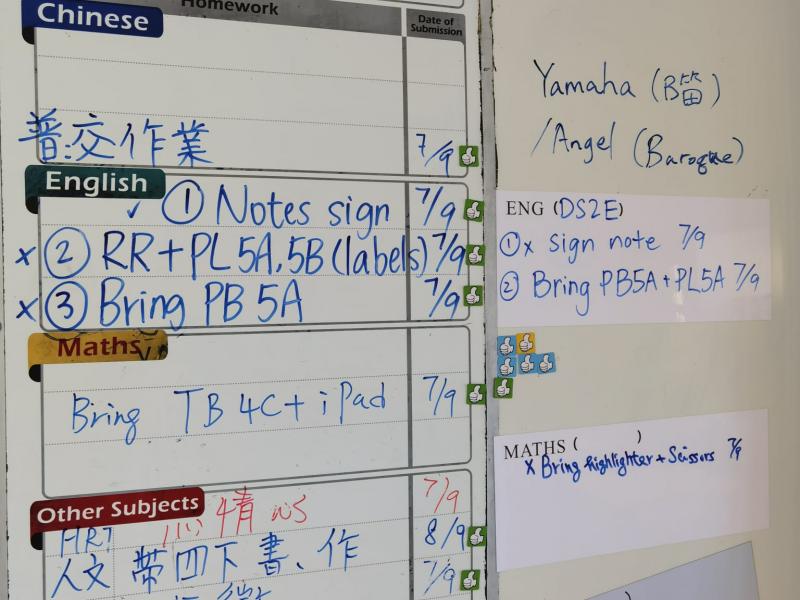 Homework
Date of Submission
Chinese
普:交作業 7/9
English
✓ ① Notes sign 7/9
x ② RR+PL 5A,5B (labels) 7/9
x ③ Bring PB 5A 7/9
Maths
Bring TB 4C + iPad 7/9
Other Subjects
7/9
HRT 8/9
人文 帶四下書、作 7/9
Yamaha (B笛)
/Angel (Baroque)
ENG (DS2E)
① x sign note 7/9
② Bring PB5A + PL5A 7/9
MATHS ( )
x Bring highlighter + Scissors 7/9